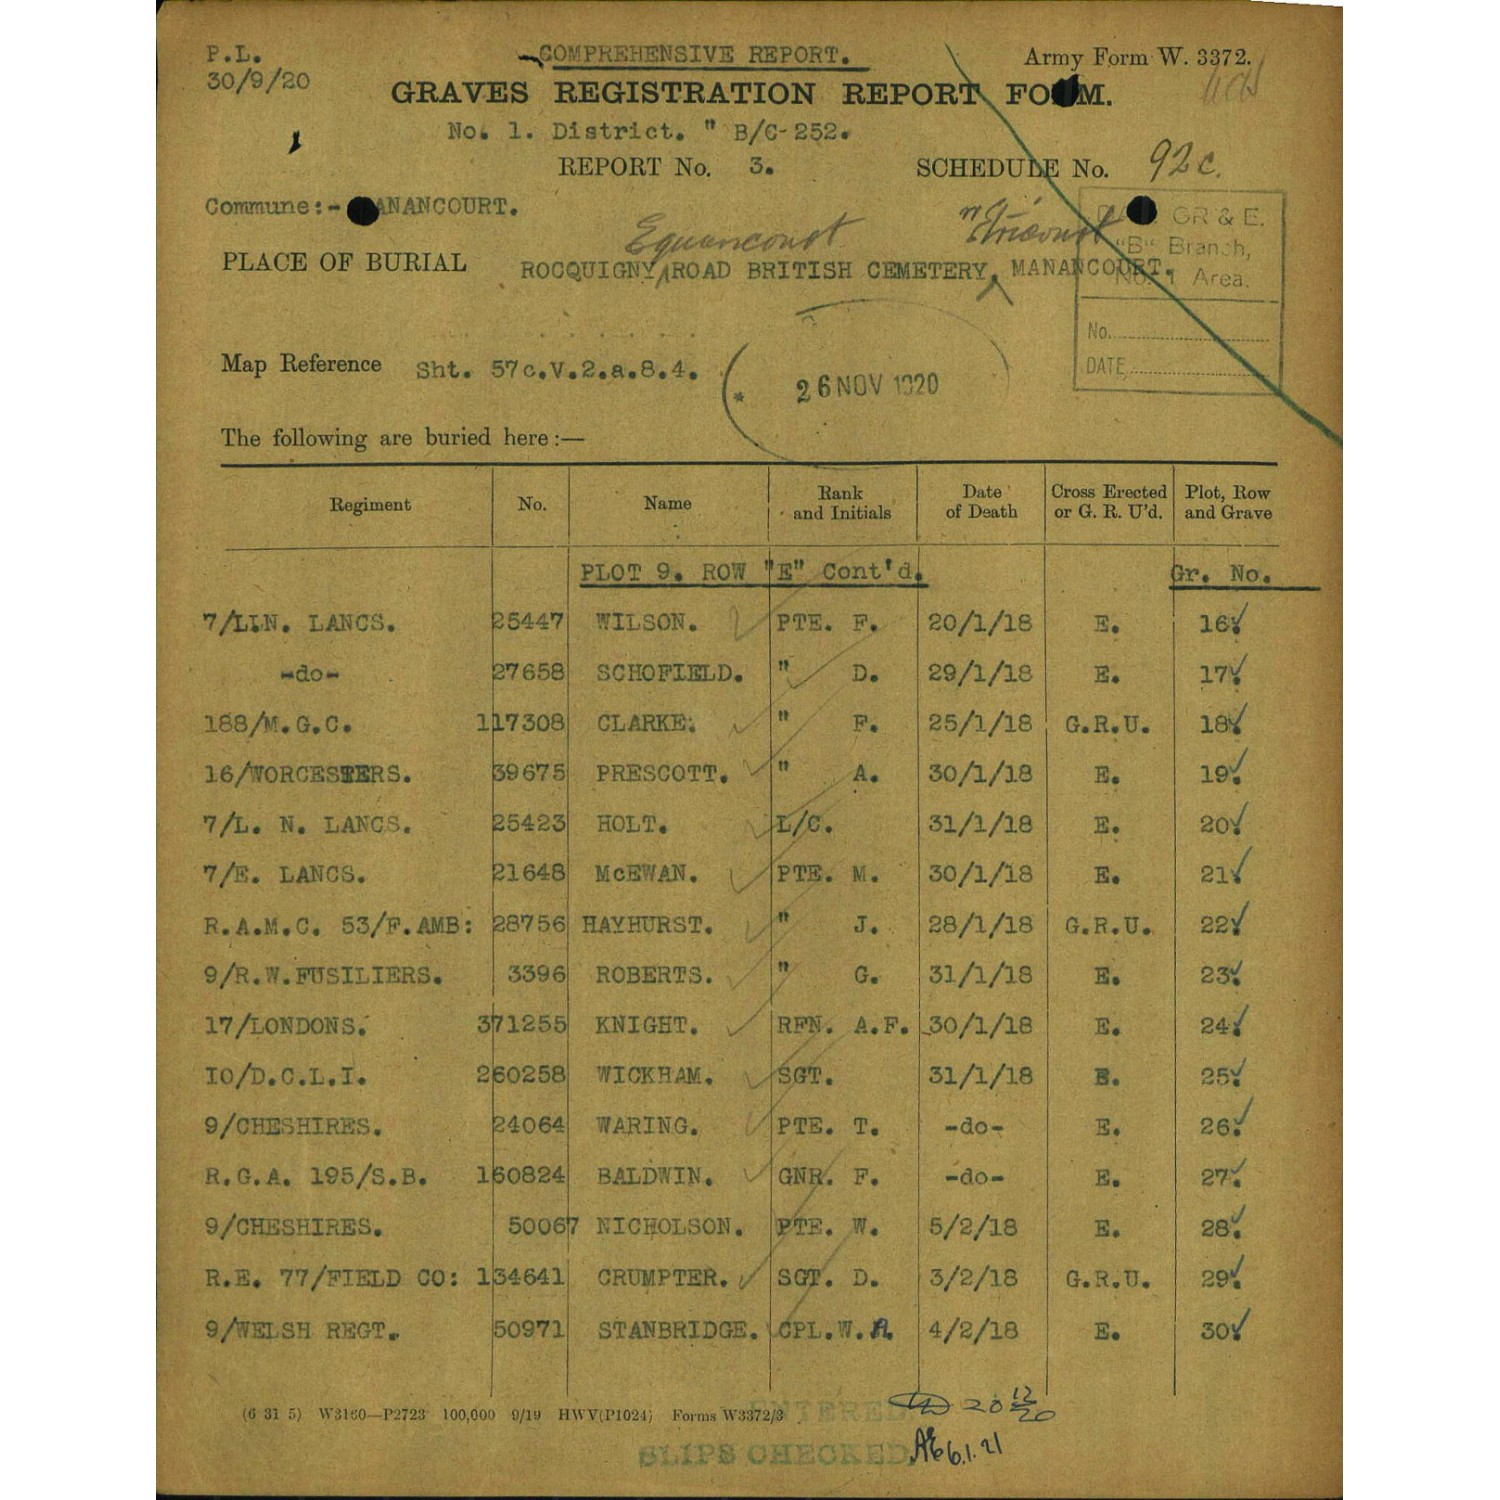 P.L.
30/9/20
COMPREHENSIVE REPORT.
Army Form W. 3372.
GRAVES REGISTRATION REPORT FO M.
No. 1. District. " B/C-252.
REPORT No. 3.
SCHEDULE No. 92c.
Commune:- ANANCOURT.
GR & E.
"B" Branch,
No. 1 Area.
No.
DATE
Equancourt
PLACE OF BURIAL ROCQUIGNY ROAD BRITISH CEMETERY, MANANCOURT.
Map Reference Sht. 57c.V.2.a.8.4.
* 26 NOV 1920
The following are buried here:—
Regiment No. Name Rank and Initials Date of Death Cross Erected or G. R. U'd. Plot, Row and Grave
PLOT 9. ROW "E" Cont'd. Gr. No.
7/LIN. LANCS. 25447 WILSON. PTE. F. 20/1/18 E. 16.
-do- 27658 SCHOFIELD. " D. 29/1/18 E. 17.
188/M.G.C. 117308 CLARKE. " F. 25/1/18 G.R.U. 18.
16/WORCESTERS. 39675 PRESCOTT. " A. 30/1/18 E. 19.
7/L. N. LANCS. 25423 HOLT. L/C. 31/1/18 E. 20.
7/E. LANCS. 21648 McEWAN. PTE. M. 30/1/18 E. 21.
R.A.M.C. 53/F.AMB: 28756 HAYHURST. " J. 28/1/18 G.R.U. 22.
9/R.W.FUSILIERS. 3396 ROBERTS. " G. 31/1/18 E. 23.
17/LONDONS. 371255 KNIGHT. RFN. A.F. 30/1/18 E. 24.
10/D.C.L.I. 260258 WICKHAM. SGT. 31/1/18 E. 25.
9/CHESHIRES. 24064 WARING. PTE. T. -do- E. 26.
R.G.A. 195/S.B. 160824 BALDWIN. GNR. F. -do- E. 27.
9/CHESHIRES. 50067 NICHOLSON. PTE. W. 5/2/18 E. 28.
R.E. 77/FIELD CO: 134641 CRUMPTER. SGT. D. 3/2/18 G.R.U. 29.
9/WELSH REGT. 50971 STANBRIDGE. CPL.W.A. 4/2/18 E. 30.
(6 31 5) W3160—P2723 100,000 9/19 HWV(P1024) Forms W3372/3
ENTERED 20 12/20
SLIPS CHECKED 6.1.21